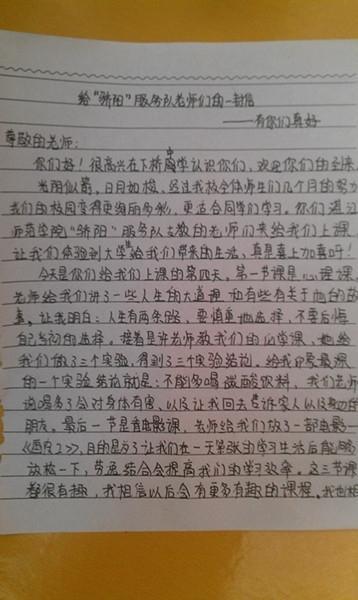 给“骄阳”服务队老师们的一封信
——有你们真好
尊敬的老师：
你们好！很高兴在下桥中学认识你们，欢迎你们的到来
光阴似箭，日月如梭，经过我校全体师生们几个月的努力
我们的校园变得更绚丽多彩，更适合同学们学习。你们通过
师范学院“骄阳”服务队支教的老师们来给我们上课
让我们体验到大学生给我们带来的生活，真是喜上加喜呀！
今天是你们给我们上课的第四天，第一节课是心理课，
老师给我们讲了一些人生的大道理和有些有关于他的故
事。让我明白：人生有两条路，要慎重地选择，不要后悔
自己当初的选择。接着是许老师教我们的化学课，她给
我们做了三个实验，得到了三个实验结论，给我印象最深
的一个实验结论就是：不能多喝碳酸饮料，我们老师
说喝多了会对身体有害，以及让我回去告诉家人以及身边的
朋友。最后一节是看电影课，老师给我们放了一部电影—
，目的是为了让我们在一天紧张的学习生活后能够
放松一下，劳逸结合会提高我们的学习效率。这三节课
都很有趣，我相信以后会有更多有趣的课程。我也相